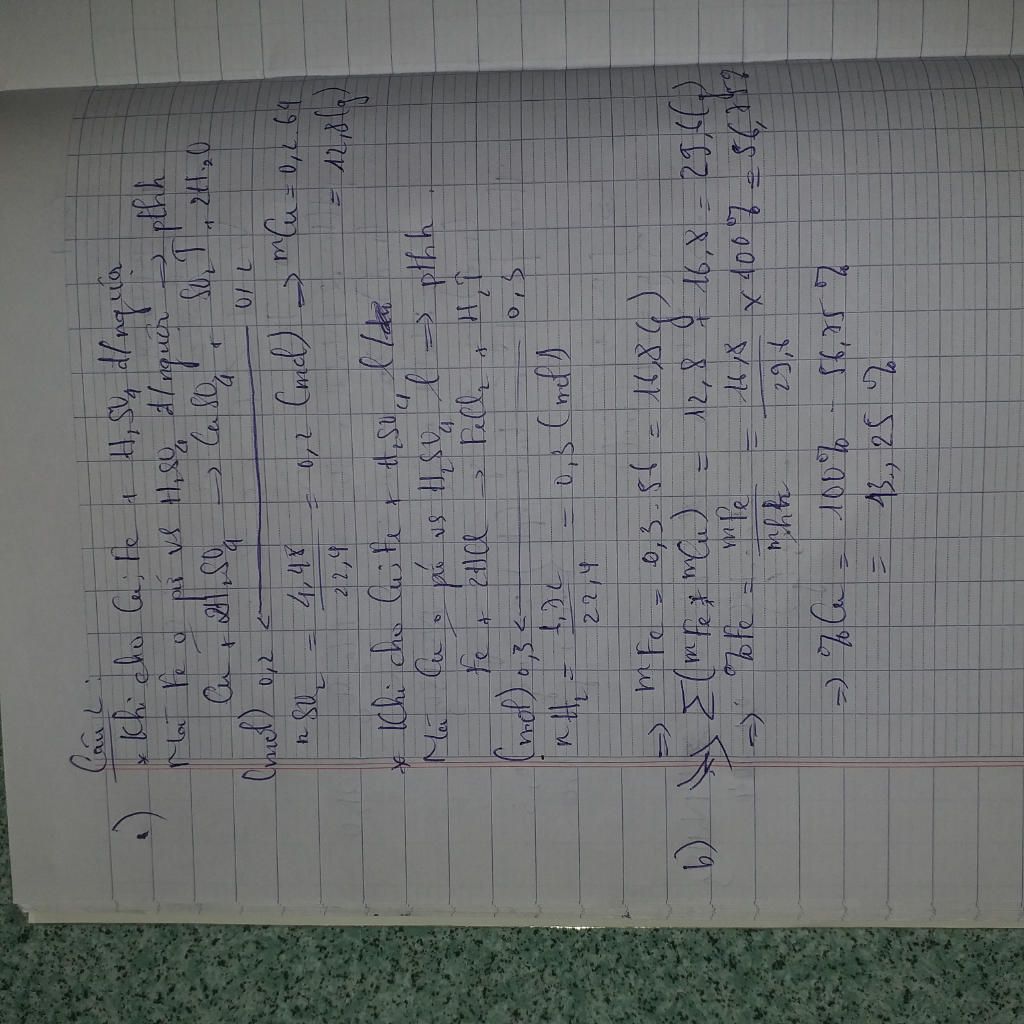 Câu 2:
a) * Khi cho Cu, Fe + H₂SO₄ đ/nguội
Mà Fe o pứ vs H₂SO₄ đ/nguội => pthh
Cu + 2H₂SO₄ → CuSO₄ + SO₂↑ + 2H₂O
(mol) 0,2 ← 0,2
nSO₂ = 4,48/22,4 = 0,2 (mol) => mCu = 0,2.64
= 12,8(g)
* Khi cho Cu, Fe + H₂SO₄ l
Mà Cu o pứ vs H₂SO₄ l => pthh
Fe + 2HCl → FeCl₂ + H₂↑
(mol) 0,3 ← 0,3
nH₂ = /22,4 = 0,3 (mol)
=> mFe = 0,3.56 = 16,8(g)
b) => Σ(mFe + mCu) = 12,8 + 16,8 = 29,6(g)
=> %Fe = mFe/mhh = 16,8/29,6 x 100% = 56,75%
=> %Cu = 100% - 56,75%
= 43,25%